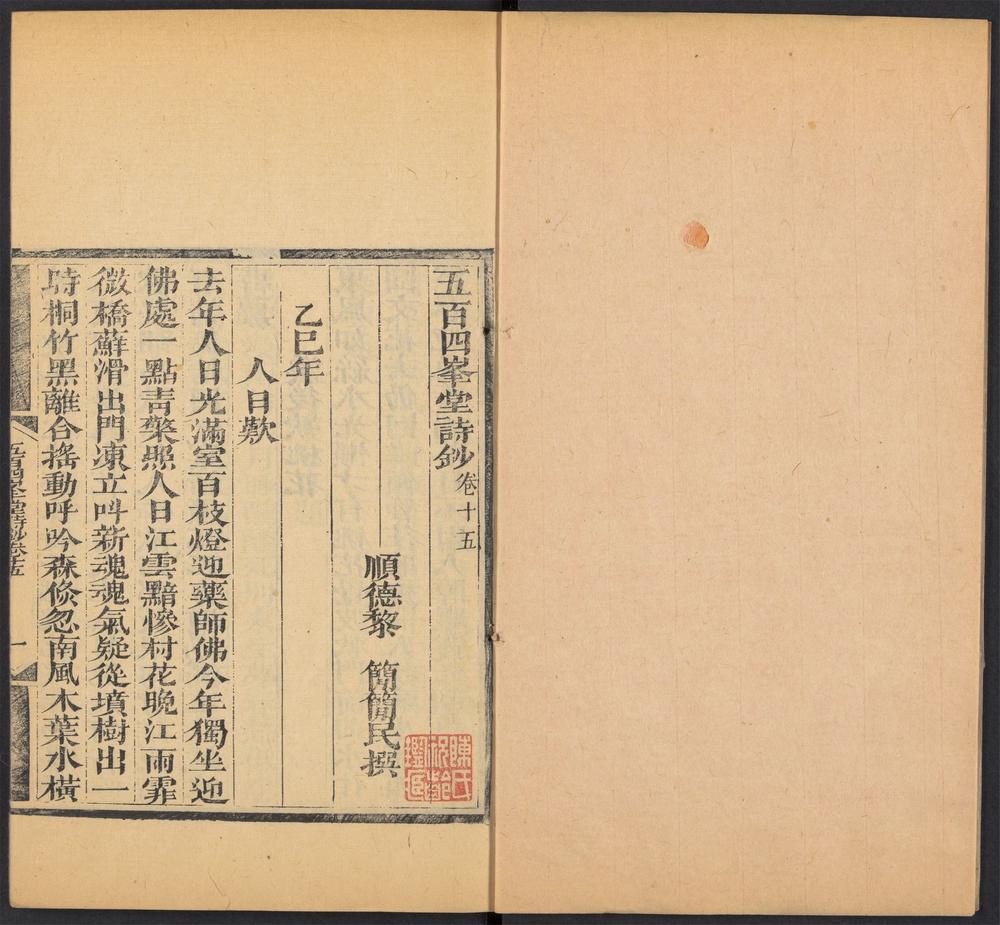 五百四峯堂詩鈔卷十五
順德黎　簡簡民撰
乙巳年
人日歎
去年人日光滿室百枝燈迎藥師佛今年獨坐迎
佛處一點青熒照人日江雲黯慘村花晩江雨霏
微橋蘚滑出門凍立呌新魂魂氣疑從墳樹出一
時桐竹黑離合搖動呼吟森倐忽南風木葉水橫
五百四峯堂詩鈔卷十五
一